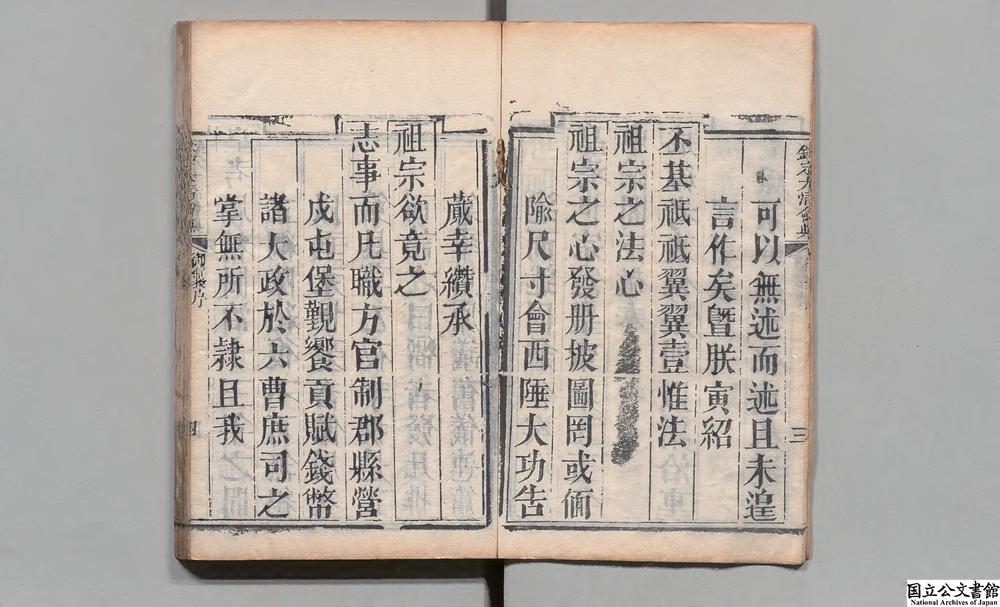 欽定大清會典
三
可以無述而述且未遑
言作矣曁朕寅紹
丕基祗祗翼翼壹惟法
祖宗之法心
祖宗之心發册披圖罔或偭
隃尺寸會西陲大功告
蕆幸纘承
祖宗欲竟之
志事而凡職方官制郡縣營
戍屯堡覲饗貢賦錢幣
諸大政於六曹庶司之
掌無所不隸且我
御製序
四
国立公文書館
National Archives of Japan